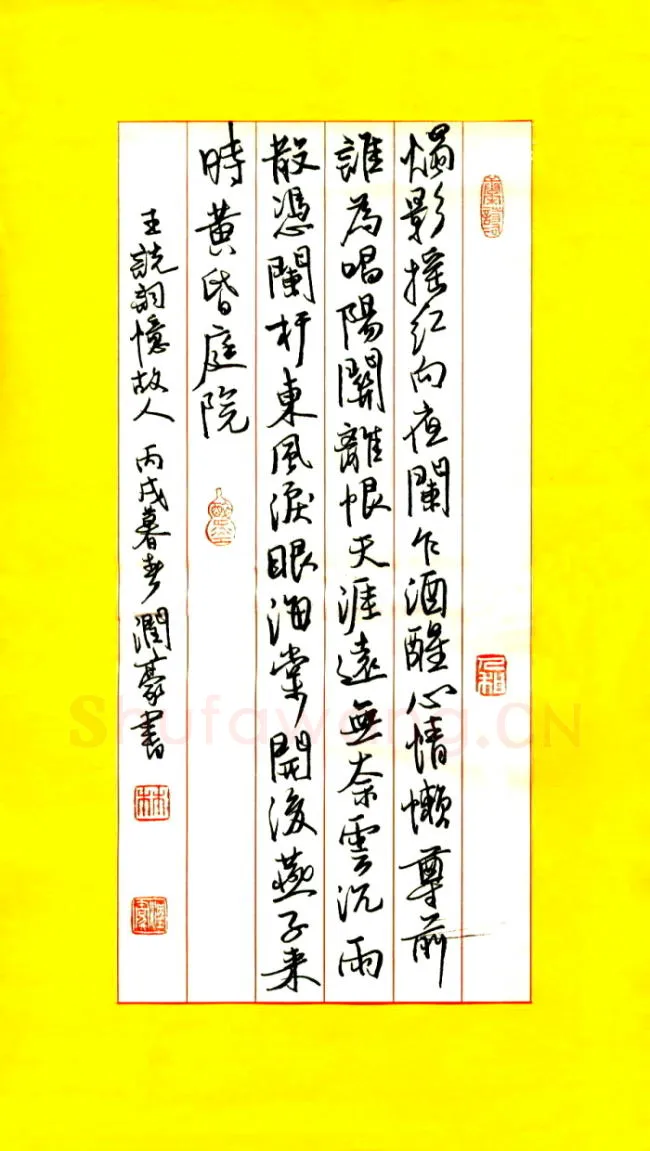 燭影搖红向夜闌乍酒醒心情懒尊前
誰為唱陽關離恨天涯遠無奈雲沉雨
散憑闌杆東風淚眼海棠開後燕子来
時黄昏庭院
王詵詞憶故人丙戌暮春潤豪書
Shufawang.CN